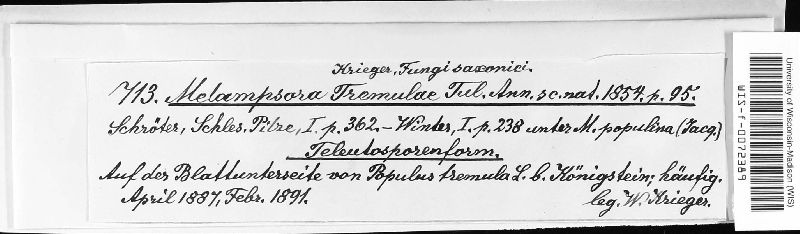 Krieger, Fungi saxonici.
713. Melampsora Tremulae Tul. Ann. sc. nat. 1854. p. 95.
Schröter, Schles. Pilze, I. p. 362. – Winter, I. p. 238 unter M. populina (Jacq.)
Teleutosporenform.
Auf der Blattunterseite von Populus tremula L. b. Königstein; häufig.
April 1887, Febr. 1891.
leg. W. Krieger.
University of Wisconsin-Madison (WIS)
WIS-f-0072389